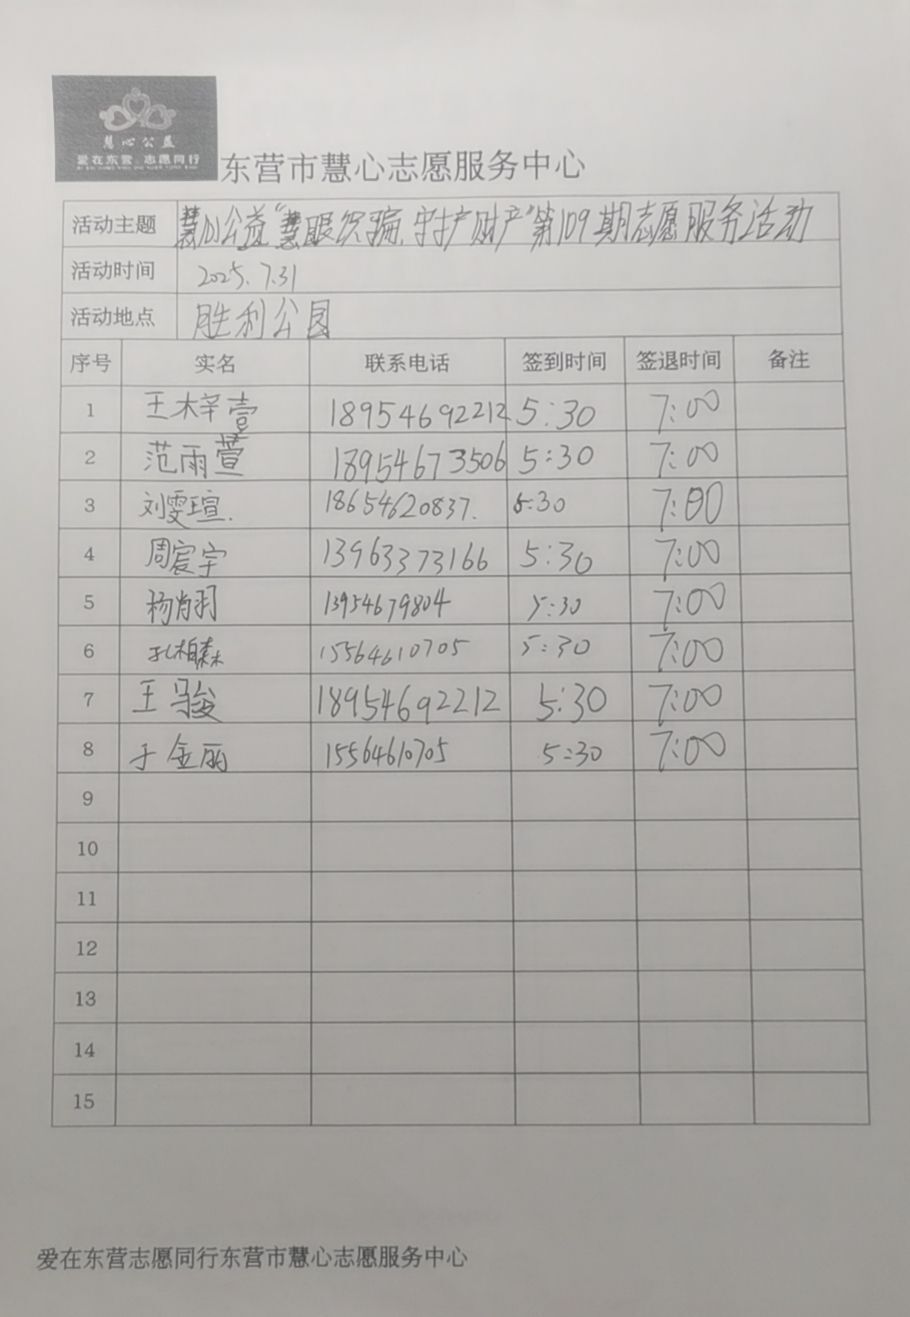 慧心公益
爱在东营 志愿同行
东营市慧心志愿服务中心
活动主题 慧心公益“慧眼识骗,守护财产”第109期志愿服务活动
活动时间 2025.7.31
活动地点 胜利公园
序号 实名 联系电话 签到时间 签退时间 备注
1 王木辛壹 18954692212 5:30 7:00
2 范雨萱 18954673506 5:30 7:00
3 刘雯瑄. 18654620837. 5:30 7:00
4 周宸宇 13963373166 5:30 7:00
5 杨肖羽 13954679804 5:30 7:00
6 孔柏森 15564610705 5:30 7:00
7 王骏 18954692212 5:30 7:00
8 于金丽 15564610705 5:30 7:00
9
10
11
12
13
14
15
爱在东营志愿同行东营市慧心志愿服务中心